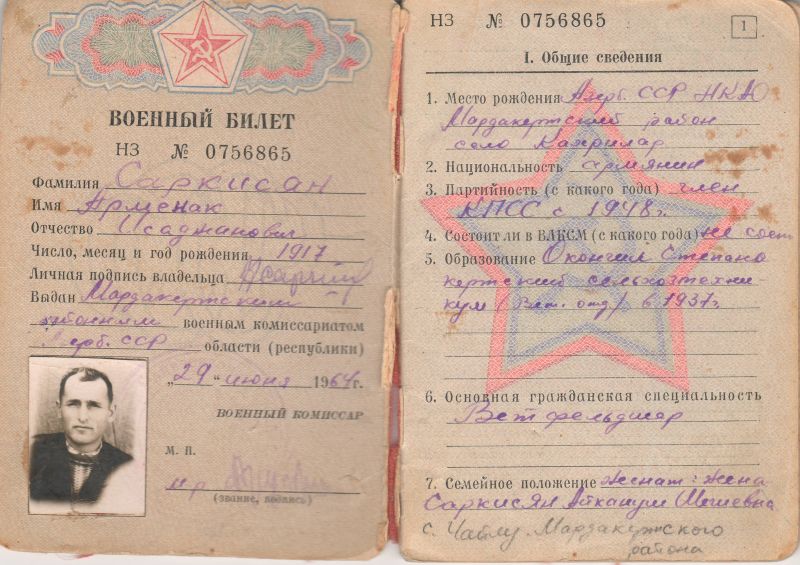 ВОЕННЫЙ БИЛЕТ
НЗ № 0756865
Фамилия Саркисян
Имя Арменак
Отчество Исаджанович
Число, месяц и год рождения 1917
Личная подпись владельца
Выдан Мардакертским
районным военным комиссариатом
Азерб. ССР области (республики)
„29“ июня 1964г.
ВОЕННЫЙ КОМИССАР
М. П.
(звание, подпись)
НЗ № 0756865
1
I. Общие сведения
1. Место рождения Азерб. ССР НКАО
Мардакертский район
село
2. Национальность армянин
3. Партийность (с какого года) член
КПСС с 1948г.
4. Состоит ли в ВЛКСМ (с какого года) не сост
5. Образование Окончил Степана
кертский сельхозтехни
кум (Вет. отд) в 1937г.
6. Основная гражданская специальность
Ветфельдшер
7. Семейное положение женат: жена
Саркисян
с. Чаблу. Мардакертского
района